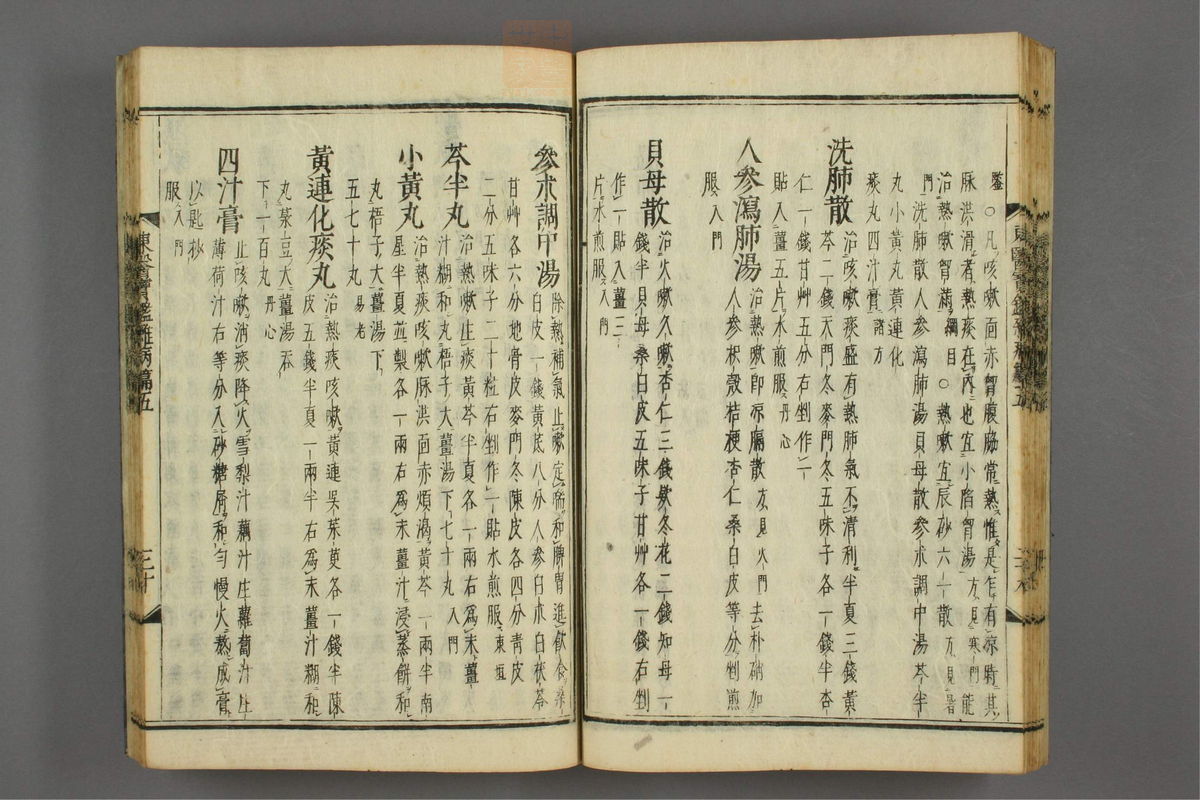 鑒○凡咳嗽面赤胷腹脇常熱惟是乍有凉時其
脉洪滑者熱痰在內也宜小陷胷湯方見寒門能
治熱嗽胷滿綱目○熱嗽宜辰砂六一散方見暑
門洗肺散人參瀉肺湯貝母散參朮調中湯芩半
丸小黃丸黃連化
痰丸四汁膏諸方
洗肺散治咳嗽痰盛有熱肺氣不清利半夏三錢黃
芩二錢天門冬麥門冬五味子各一錢半杏
仁一錢甘艸五分右剉作一
貼入薑五片水煎服丹心
人參瀉肺湯治熱嗽即凉膈散方見火門去朴硝加
人參枳殼桔梗杏仁桑白皮等分剉煎
服入門
貝母散治火嗽久嗽杏仁三錢款冬花二錢知母一
錢半貝母桑白皮五味子甘艸各一錢右剉
作一貼入薑三
片水煎服入門
東醫寶鑑雜病篇五
參朮調中湯除熱補氣止嗽定喘和脾胃進飮食桑
白皮一錢黃芪八分人參白朮白茯苓
甘艸各六分地骨皮麥門冬陳皮各四分靑皮
二分五味子二十粒右剉作一貼水煎服東垣
芩半丸治熱嗽生痰黃芩半夏各一兩右爲末薑
汁糊和丸梧子大薑湯下七十丸入門
小黃丸治熱痰咳嗽脉洪面赤煩渴黃芩一兩半南
星半夏並製各一兩右爲末薑汁浸蒸餠和
丸梧子大薑湯下
五七十丸易老
黃連化痰丸治熱痰咳嗽黃連吳茱萸各一錢半陳
皮五錢半夏一兩半右爲末薑汁糊和
丸菉豆大薑湯呑
下一百丸丹心
四汁膏止咳嗽消痰降火雪梨汁藕汁生蘿葍汁生
薄荷汁右等分入砂糖屑和勻慢火熬成膏
以匙抄
服入門
東醫寶鑑雜病篇五
三十